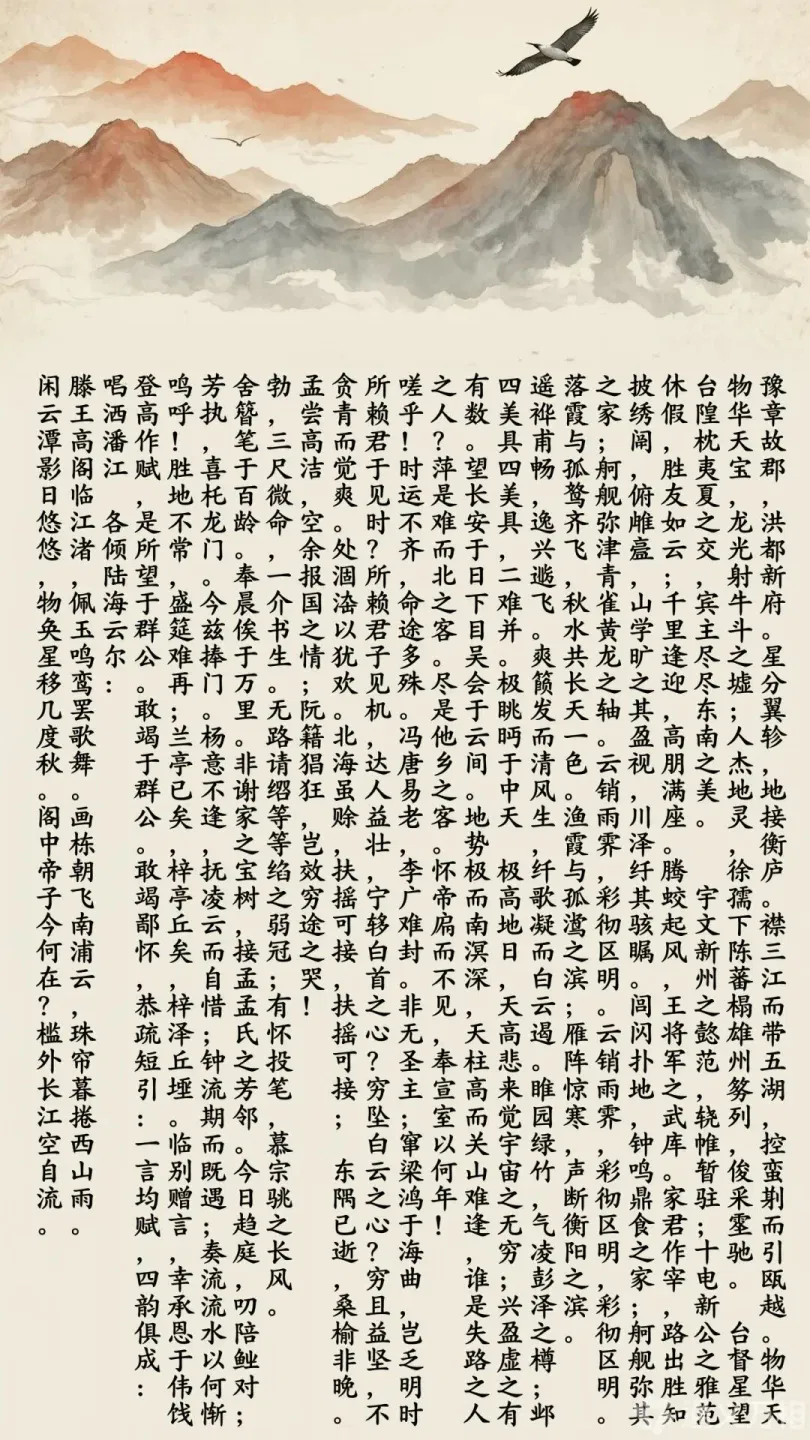 豫章故郡，洪都新府。星分翼轸，地接衡庐。襟三江而带五湖，控蛮荆而引瓯越。物华天
物华天宝，龙光射牛斗之墟；人杰地灵，徐孺下陈蕃榻雄州雾列，俊采星驰。台督星望
台隍枕夷夏之交，宾主尽尽东南之美。宇文新州之懿范，棨帷暂驻；十电新公之雅范
休假，胜友如云；千里逢迎，高朋满座。腾蛟起风，王将军之武库。家君作宰，路出胜知
披绣闼，俯雕甍，山学旷之其盈视，川泽纡其骇瞩。闾闪扑地，钟鸣鼎食之家；舸舰弥其
之家；舸舰弥津青雀黄龙之轴。云销雨霁，彩彻区明。云销雨霁，彩彻区明，彩彻区明。
落霞与孤鹜齐飞，秋水共长天一色。渔霞与孤鹜之滨；雁阵惊寒，声断衡阳之滨。
遥襟甫畅，逸兴遄飞。爽籁发而清风生，纤歌凝而白云遏。睢园绿竹，气凌彭泽之樽；邺
四美具四美具，二难并。极眺眄于中天 极高地日，天高悲来觉宇宙之无穷；兴盈虚之有
有数。望长安于日下目吴会于云间。地势极而南溟深，天柱高而关山难逢，谁是失路之人
之人？萍是难而北之客。尽是他乡之客。怀帝扃而不见，奉宣室以何年！
嗟乎！时运不齐，命途多殊。冯唐易老，李广难封。非无圣主；窜梁鸿于海曲，岂乏明时
所赖君于见时？所赖君子见机，达人益壮，宁移白首之心？穷坠白云之心？穷且益坚，不
贪青而觉爽。处涸渝以犹欢。北海虽赊，扶摇可接，扶摇可接；东隅已逝，桑榆非晚。
孟尝高洁，空余报国之情；阮籍猖狂，岂效穷途之哭！
勃，三尺微命，一介书生。无路请绍等等绐之弱冠；有怀投笔，慕宗骁之长风。
舍簪笔于百龄。奉晨俟于万里。非谢家之宝树，接孟孟氏之芳邻。今日趋庭，叨陪鲤对；
芳执，喜托龙门。今兹捧门。杨意不逢，抚凌云而自惜；钟流期而既遇；奏流流水以何惭
鸣呼！胜地不常，盛筵难再；兰亭已矣，梓亭丘矣，梓泽丘墟。临别赠言，幸承恩于伟饯
登高作赋，是所望于群公。敢竭于群公。敢竭鄙怀，恭疏短引：一言均赋，四韵俱成：
唱洒潘江 各倾陆海云尔：
滕王高阁临江渚，佩玉鸣鸾罢歌舞。画栋朝飞南浦云，珠帘暮捲西山雨。
闲云潭影日悠悠，物奂星移几度秋。阁中帝子今何在？槛外长江空自流。